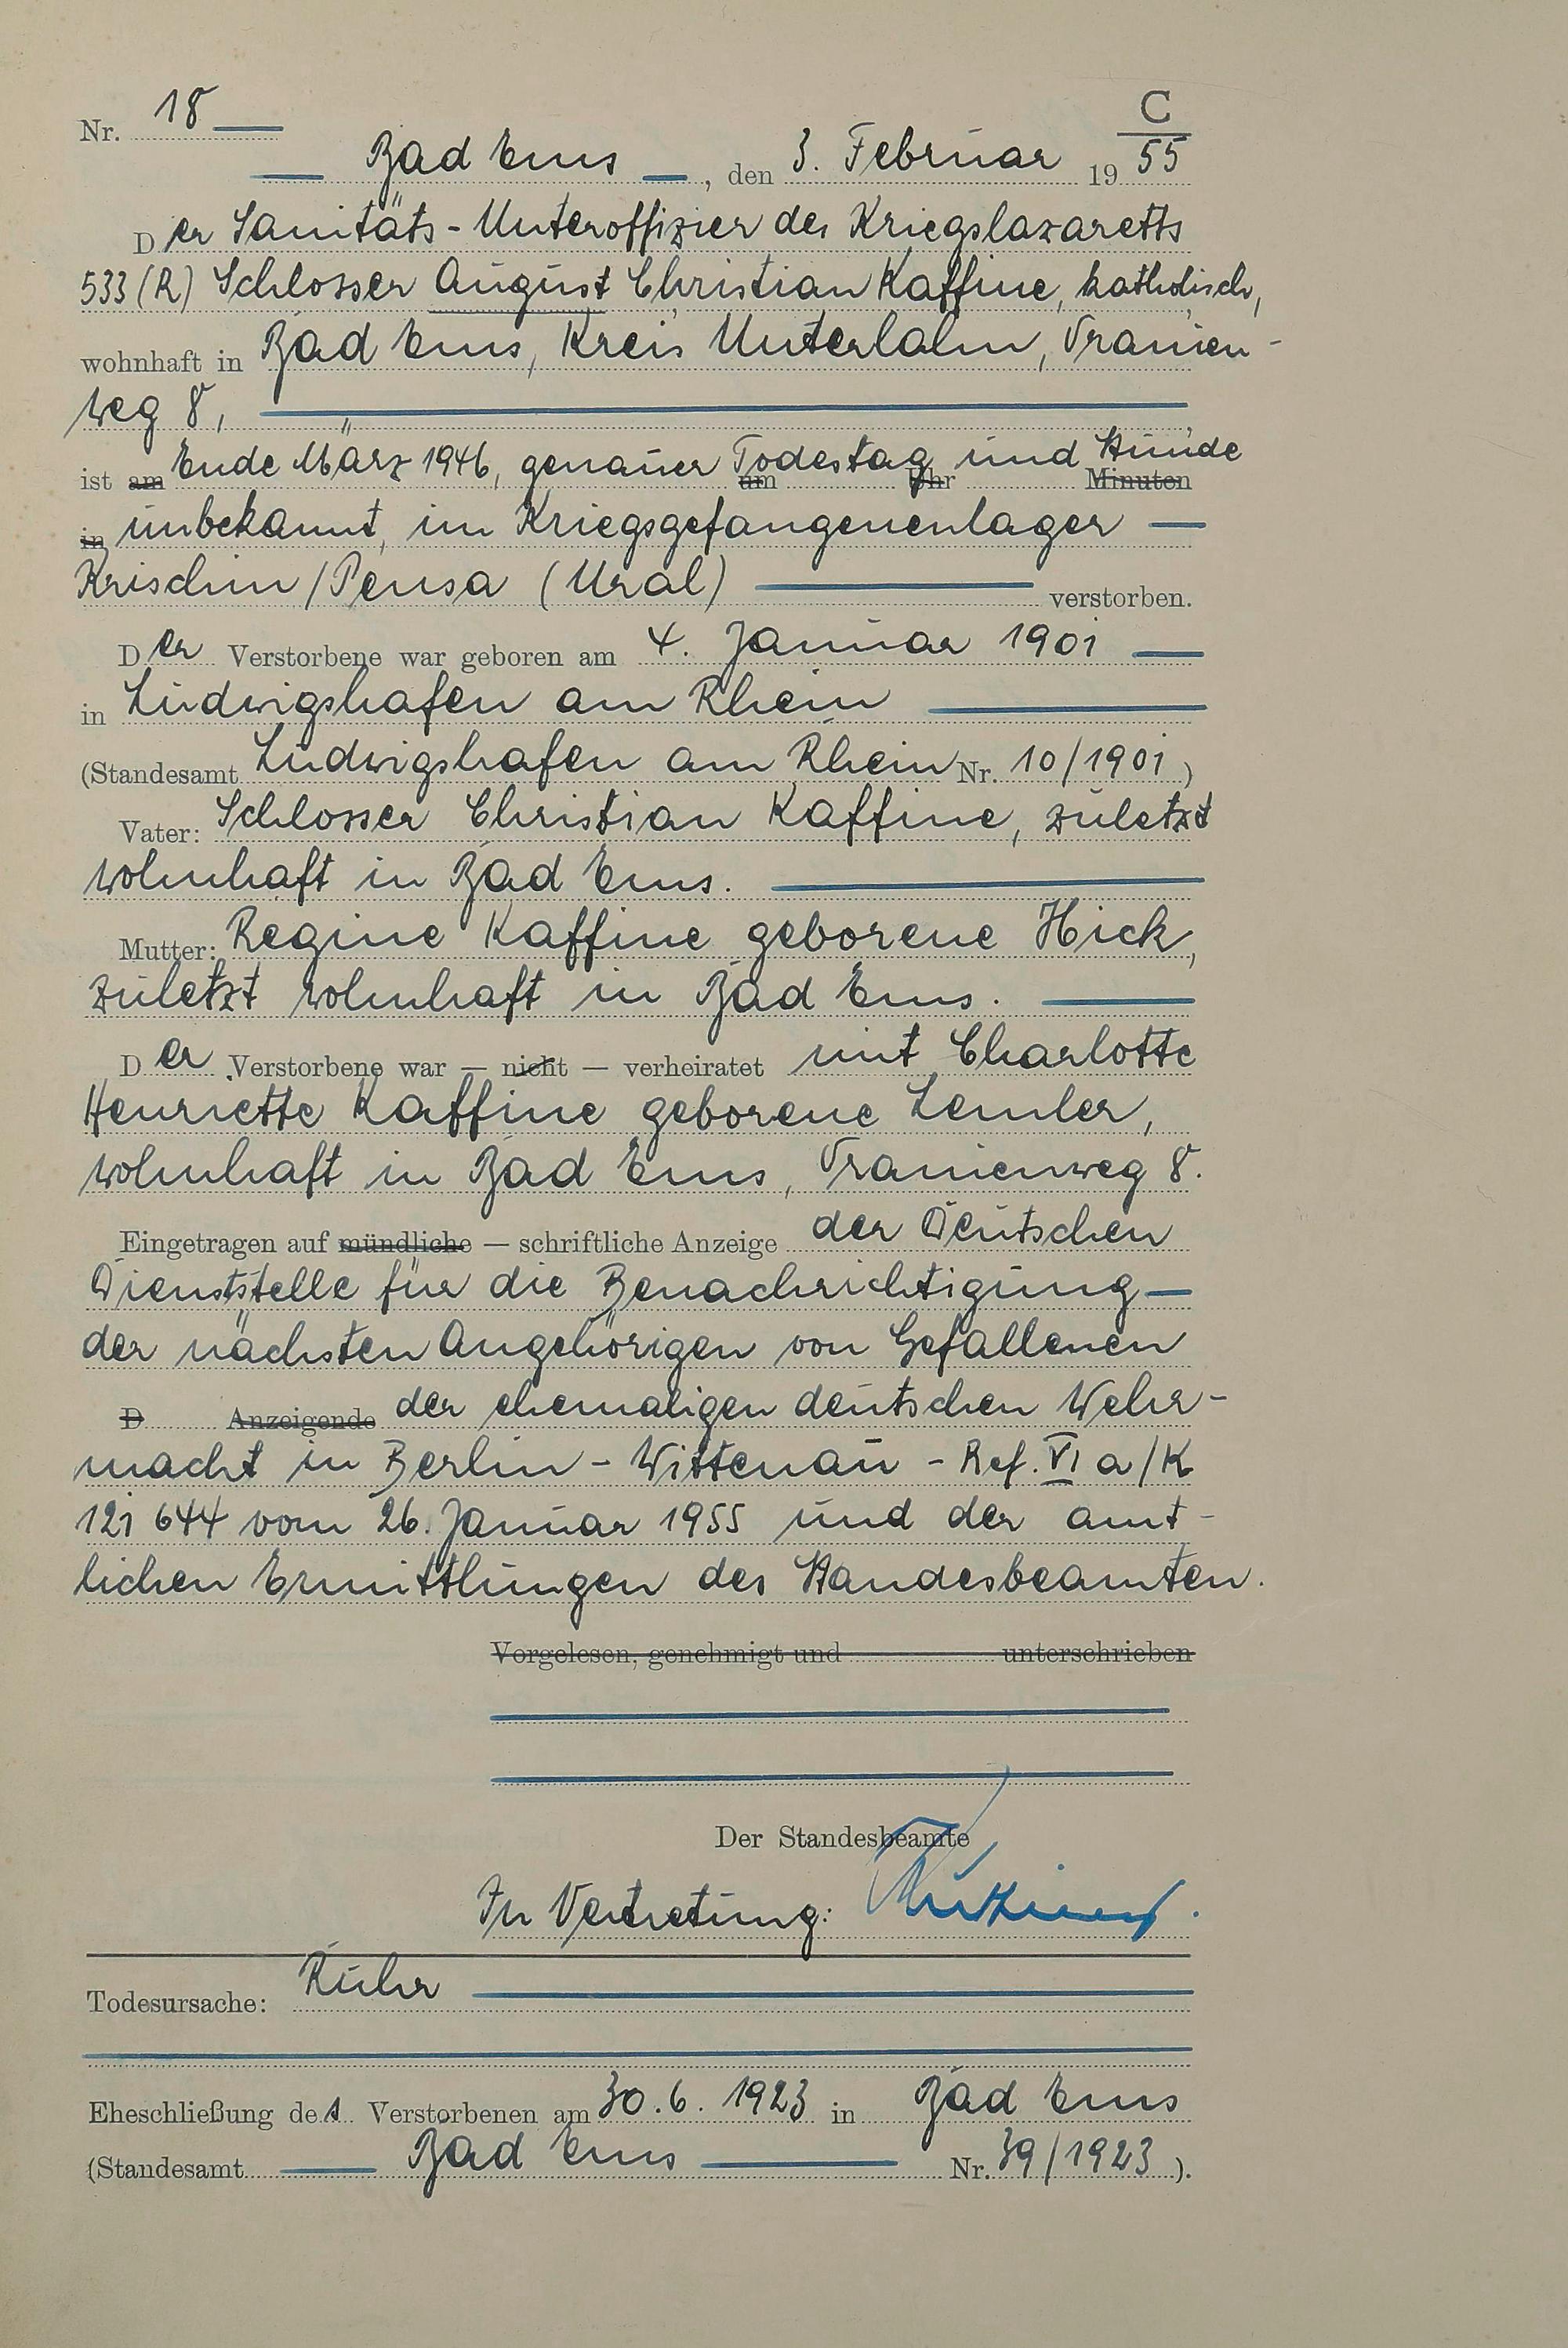 C
Nr. 18
Bad Ems, den 3. Februar 1955
Der Sanitäts-Unteroffizier des Kriegslazaretts
533 (R) Schlosser August Christian Kaffine, katholisch,
wohnhaft in Bad Ems, Kreis Unterlahn, Oranien-
weg 8,
ist am Ende März 1946, genauer Todestag und Stunde
um Uhr Minuten
in unbekannt, im Kriegsgefangenenlager
Krischim/Pensa (Ural) verstorben.
Der Verstorbene war geboren am 4. Januar 1901
in Ludwigshafen am Rhein
(Standesamt Ludwigshafen am Rhein Nr. 10/1901)
Vater: Schlosser Christian Kaffine, zuletzt
wohnhaft in Bad Ems.
Mutter: Regine Kaffine geborene Hick,
zuletzt wohnhaft in Bad Ems.
Der Verstorbene war — nicht — verheiratet mit Charlotte
Henriette Kaffine geborene Lemler,
wohnhaft in Bad Ems, Oranienweg 8.
Eingetragen auf mündliche — schriftliche Anzeige der Deutschen
Dienststelle für die Benachrichtigung
der nächsten Angehörigen von Gefallenen
D Anzeigende der ehemaligen deutschen Wehr-
macht in Berlin-Wittenau - Ref. VI a/K
121 644 vom 26. Januar 1955 und der amt-
lichen Ermittlungen des Standesbeamten.
Vorgelesen, genehmigt und unterschrieben
Der Standesbeamte
In Vertretung:
Todesursache: Ruhr
Eheschließung des Verstorbenen am 30.6.1923 in Bad Ems
(Standesamt Bad Ems Nr. 39/1923).